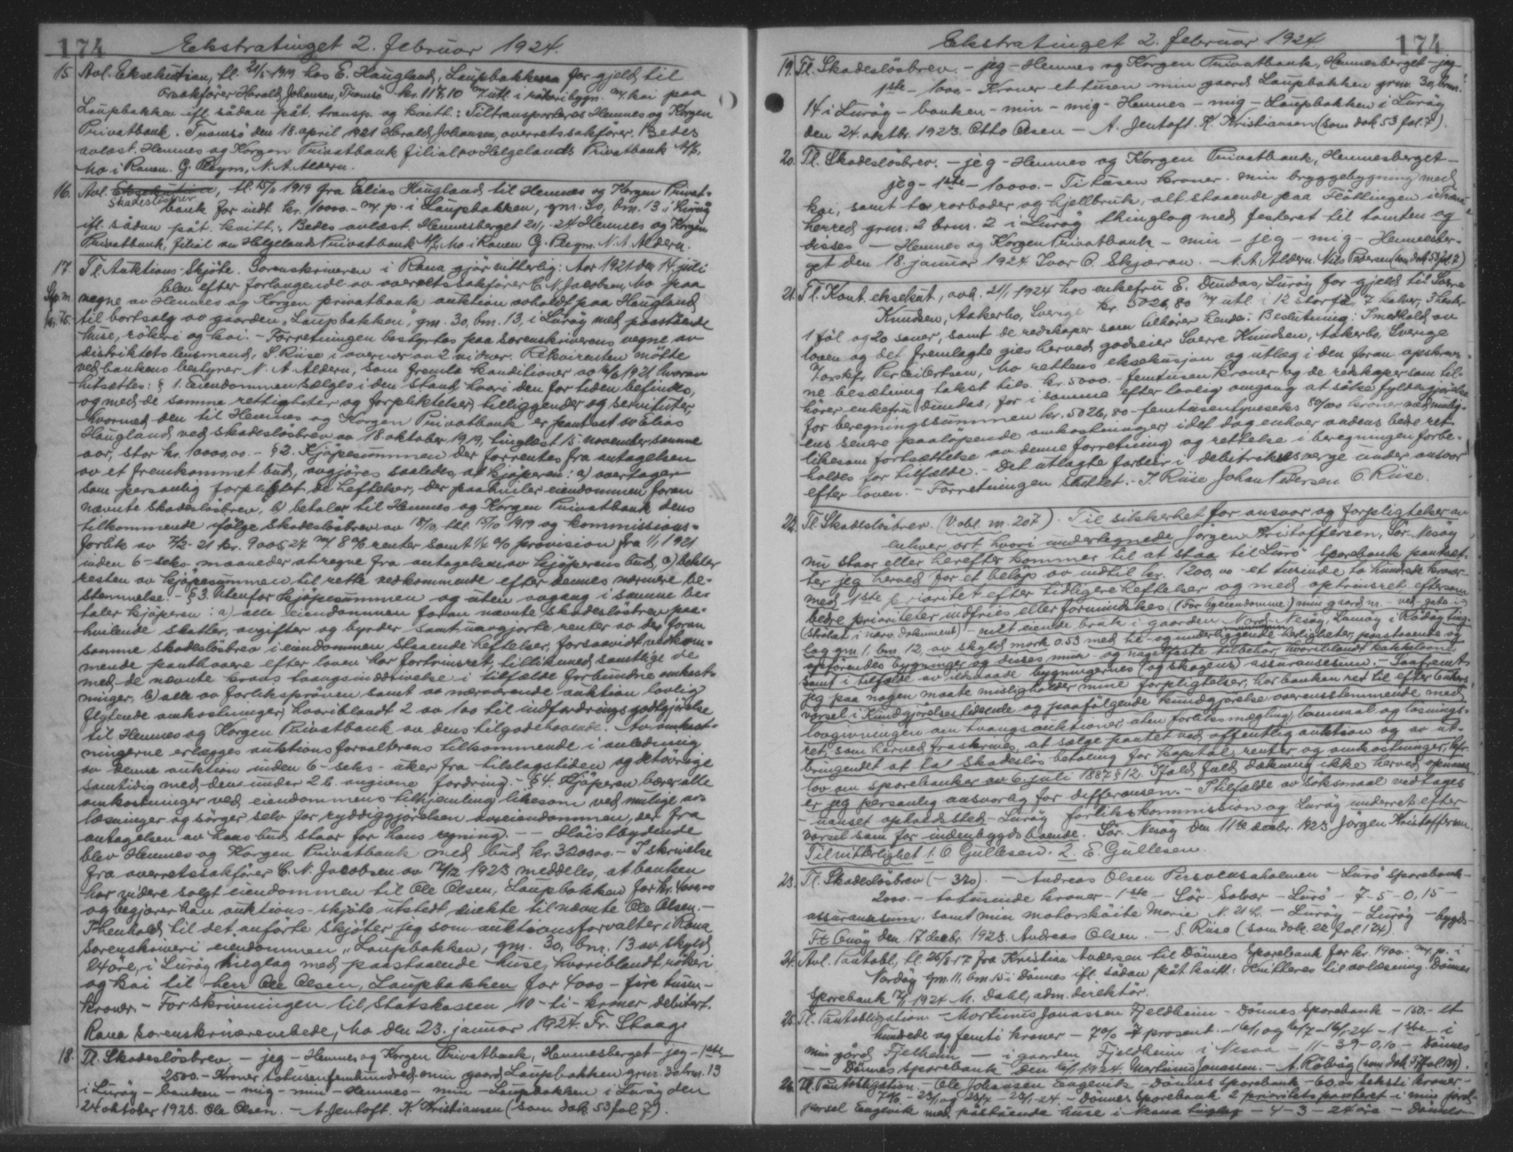 174
Ekstratinget 2. februar 1924.
15. Avl. Eksekution, tl. 21/5 1919 hos E. Haugland, Laupbakken for gjeld til
Harald Johansen, Tromsø kr. 117.10 m/utl. i bygn. m/ kai paa
Laupbakken ifl. sådan påt. transp. og kvitt.: Tiltransporteres Hemnes og Korgen
Privatbank. Tromsø den 18. april 1921 Harald Johansen, overretssakfører. Bedes
avlæst. Hemnes og Korgen Privatbank filial av Helgelands Privatbank A/S.
Mo i Ranen. G. Reym, N. A. Aldern.
16. Avl. Skadesløsbrev, tl. 15/11 1919 fra Elias Haugland til Hemnes og Korgen Privat-
bank for indt. kr. 10000.- m/ p. i Laupbakken, grn. 30, brn. 13 i Lurøy
ifl. sådan påt. kvitt.: Bedes avlæst. Hemnesberget 21/1-24 Hemnes og Korgen
Privatbank, filial av Helgelands Privatbank A/S. Mo i Ranen G. Reym. N. A. Aldern.
17. Tl. Auktions Skjøte. Sorenskriveren i Rana gjør vitterlig: Aar 1921 den 14 juli
blev efter forlangende av overretssakfører C. N. Jacobsen, Mo paa
vegne av Hemnes og Korgen privatbank auktion avholdt paa Haugland
til bortsalg av gaarden, "Laupbakken", grn. 30, brn. 13, i Lurøy med paastaaende
huse, røkeri og kai. - Forretningen bestyrtes paa sorenskriverens vegne av
distriktets lensmand, S. Riise i overvær av 2 vidner. Rekvirenten møtte
ved bankens bestyrer N. A. Aldern, som fremla konditioner av 1921 hvorav
hitsettes: § 1. Eiendommen sælges i den stand, hvori den for tiden befindes,
og med de samme rettigheter og forpliktelser, tilliggender og servitutter,
hvormed den til Hemnes og Korgen Privatbank er pantsat av Elias
Haugland ved skadesløsbrev av 18 oktober 1919, tinglæst 15 november samme
aar, stor kr. 10000,00. - § 2. Kjøpesummen der forrentes fra antagelsen
av et fremkommet bud, avgjøres saaledes at kjøperen: a) overtager
som personlig forpliktet de heftelser, der paahviler eiendommen foran
nævnte skadesløsbrev, b) betaler til Hemnes og Korgen Privatbank dens
tilkommende ifølge skadesløsbrev av 18/10 tl. 15/11 1919 og kommissions-
forlik av 7/2-21 kr. 9005,27 m/ 8% renter samt 1/4 % provision fra 1/1 1921
inden 6-seks maaneder at regne fra antagelsen av kjøperens bud, c) betaler
resten av kjøpesummen til rette vedkommende efter dennes nærmere be-
stemmelse. - § 3. Utenfor kjøpesummen og uten avgang i samme be-
taler kjøperen: a) alle eiendommen foran nævnte skadesløsbrev paa-
hvilende skatter, avgifter og byrder samt uavgjorte renter av des foran
samme skadesløsbrev i eiendommen staaende heftelser, forsaavidt vedkom-
mende panthavere efter loven har fortrinsret, tillikemed samtlige de
med de nævnte kravs tvangsinddrivelse i tilfælde forbundne omkost-
ninger. b) alle av forliksprøven samt av nærværende auktion lovlig
flytende omkostninger, hvoriblandt 2 av 100 til indfordringsgodtgjørelse
til Hemnes og Korgen Privatbank av dens tilgodehavende. Av omkost-
ningerne erlægges auktionsforvalterens tilkommende i anledning
av denne auktion inden 6-seks-uker fra tilslagstiden og det øvrige
samtidig med den under 2 b angivne fordring. - § 4. Kjøperen bærer alle
omkostninger ved eiendommens tilhjemling, likesom ved mulige av-
løsninger og sørger selv for ryddiggjørelsen av eiendommen, der fra
antagelsen av hans bud staar for hans regning. - - Høistbydende
blev Hemnes og Korgen Privatbank med bud kr. 3000.00. - I skrivelse
fra overretssakfører C. N. Jacobsen av 12/12 1923 meddeles, at banken
har videre solgt eiendommen til Ole Olsen, Laupbakken for kr. 4000.00
og begjærer han auktions-skjøte utstedt direkte til nævnte Ole Olsen. -
I henhold til det anførte skjøter jeg som auktionsforvalter i Rana
sorenskriveri eiendommen "Laupbakken", grn. 30, brn. 13 av skyld
24 øre, i Lurøy tinglag med paastaaende huse, hvoriblandt røkeri
og kai til herr Ole Olsen, Laupbakken for 4000 - fire tusen -
kroner. - For skrivningen til Statskassen 10 - ti - kroner debitert.
Rana sorenskriverembede, Mo den 23. januar 1924. Fr. Skaage
18. Tl. Skadesløsbrev. - jeg - Hemnes og Korgen Privatbank, Hemnesberget - jeg - 1ste
2500.- Kroner totusenfemhundred min gaard Laupbakken grn. 30 brn. 13
i Lurøy - banken - mig - min - Hemnes - min - Laupbakken i Lurøy den
24 oktober 1923. Ole Olsen. - A. Jentoft. K. Kristiansen (som dok. 53 fol. 7).
174
Ekstratinget 2. februar 1924.
19. Tl. Skadesløsbrev. - jeg - Hemnes og Korgen Privatbank, Hemnesberget - jeg -
1ste - 1000.- Kroner et tusen min gaard Laupbakken grn. 30, brn.
14 i Lurøy - banken - min - mig - Hemnes - mig - Laupbakken i Lurøy
den 24. oktbr. 1923. Otto Olsen - A. Jentoft. K. Kristiansen (som dok. 53 fol. 7).
20. Tl. Skadesløsbrev. - jeg - Hemnes og Korgen Privatbank, Hemnesberget -
jeg - 1ste - 10000.- Ti tusen kroner. min bryggebygning med
kai, samt tør rorboder og hjellbruk, alt staaende paa Fløttingen i Træn
herred grn. 2 brn. 2 i Lurøy thinglag med festeret til tomten og
disses - Hemnes og Korgen Privatbank - min - jeg - mig - Hemnesber-
get den 18. januar 1924 Ivar P. Skjæran. - N. A. Aldern. Nils Pedersen (som dok. 53 fol. 7)
21. Tl. Kont. eksekut., avh. 21/1 1924 hos enkefru E. Dundas, Lurøy for gjeld til Sverre
Knudsen, Aakerbo, Sverige kr. 5026,80 m/ utl. i 12 storfæ, 7 kalver,
1 føl og 20 sauer, samt de redskaper som tilhører hende. Beslutning: I medhold av
loven og det fremlagte gies herved godseier Sverre Knudsen, Aakerbo, Sverige
v/ orskfr. Per Eilertsen, Mo rettens eksekusjon og utlæg i den foran opskrev-
ne besætning takst tils. kr. 5000.- femtusen kroner og de redskaper som til-
hører enkefru Dundas, for i samme efter lovlig omgang at søke fyldestgjørelse
for beregningssummen kr. 5026,80 - femtusentyveseks 80/100 kroner ved mulig-
ens senere paaløpende omkostninger, idet dog enhver andens bedre ret
likesom fortsættelse av denne forretning og rettelse i beregningen forbe-
holdes for tilfælde. - Det utlagte forblir i debitricens verge under ansvar
efter loven. - Forretningen sluttet. - S. Riise Johan Pedersen O. Riise.
22. Tl. Skadesløsbrev (Vabl. m. 207). Til sikkerhet for ansvar og forpligtelser av
enhver art hvori undertegnede Jørgen Kristoffersen, Sør-Nesøy
nu staar eller herefter kommer til at staa til Lurø Sparebank pantsæt-
ter jeg herved for et beløp av indtil kr. 1200,00 - et tusinde to hundrede kroner -
med 1ste prioritet efter tidligere heftelser og med optrinsret eftersom
bedre prioriteter indfries eller formindskes (For byeiendomme) min gaard m. ved gate i
(Strøket i nærv. dokument) - mit eiende bruk i gaarden Nordre Nesøy, Lurøy i Rødøy ting-
lag grn. 1, brn. 12, av skyld mark 0.53 med til- og underliggende herligheter, paastaaende og
opførendes bygninger og disses mur- og nagelfaste tilbehør, hvoriblandt kakkelovne
samt i tilfælde av ildskade bygningernes (og skogens) assuransesum. - Saafremt
jeg paa nogen maate misligholder mine forpligtelser, har banken ret til efter ukers
varsel i Kundgjørelsestidende og paafølgende kundgjørelse overensstemmende med
lovgivningen om tvangsauktioner, uten forliksmægling, lovmaal og løsnings-
ret, som herved fraskrives, at sælge pantet ved offentlig auktion og av ut-
bringendet at ta skadesløs betaling for kapital, renter og omkostninger, kfr.
lov om sparebanker av 6. juli 1887 § 12. Ifald fuld dækning ikke herved opnaaes,
er jeg personlig ansvarlig for differansen. - I tilfælde av søksmaal vedtages
- uanset opholdssted - Lurøy forlikskommission og Lurøy underret efter
varsel som for indenbygds boende. Sør-Nesøy den 11te decbr. 1923 Jørgen Kristoffersen.
Til vitterlighet 1. O. Gullesen. 2. E. Gullesen.
23. Tl. Skadesløsbrev (- 320). - Andreas Olsen - Lurø Sparebank -
2000.- totusinde kroner - 1ste - Sør-Solvær - Lurø - 7-5-0,15 -
assuransesum samt min motorskøite Marie N. 21 L. - Lurøy - Lurøy - bygds-
Ft Onøy den 17 decbr. 1923. Andreas Olsen. - S. Riise (som dok. 22 fol 174).
24. Avl. Pantobl. tl. 26/6 17 fra Kristine Andersen til Dønnes Sparebank for kr. 1900.- m/ p. i
Nordøy grn. 11, brn. 15 i Dønnes ifl. sådan påt. kvitt.: Kvitteres til avlæsning. Dønnes
Sparebank 1924. M. Dahl, adm. direktør.
25. Tl. Pantobligation - Martinus Jonassen Fjeldheim - Dønnes Sparebank - 150.- et
hundrede og femti kroner - 7% prosent - 16/1 og 16/7 - 16/1-24 - 1ste - i
min gård Fjelheim - i gaarden Fjeldheim i Nesna - 11-39-0,10 - Dønnes
- - Dønnes Sparebank den 16/1-1924. Martinus Jonassen. - A. Røbrøy (som dok. 7 fol. 174).
26. Tl. Pantobligation. - Ole Johansen Eagevik - Dønnes Sparebank - 60.- seksti kroner -
7% - 23/1 og 23/7 - 23/1-24. - Dønnes Sparebank 2 prioritets panteret i min jord-
parsel Eagevik med påstående huse i Nesna tinglag - 4-3-24 øre - Dønnes -